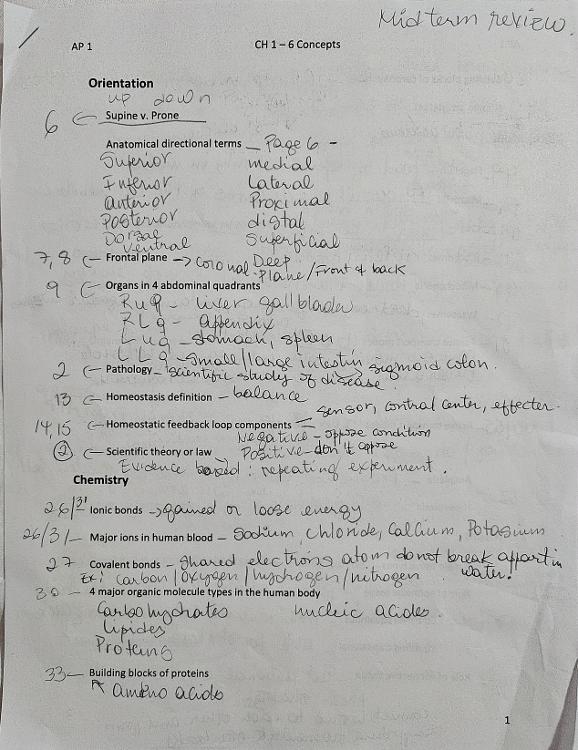 Midterm review.
AP 1 CH 1 – 6 Concepts
Orientation
up down
6 Supine v. Prone
Anatomical directional terms – Page 6 -
Superior medial
Inferior Lateral
anterior Proximal
Posterior distal
Dorsal Superficial
Ventral Deep
7, 8 Frontal plane → coronal Plane/Front & back
9 Organs in 4 abdominal quadrants
RUQ - liver gallbladder
RLq - appendix
LUq - stomach, spleen
LLq - small/large intestin sigmoid colon.
2 Pathology - scientific study of disease.
13 Homeostasis definition - balance
14, 15 Homeostatic feedback loop components = sensor, control center, effecter.
Negative - oppose condition
② Scientific theory or law Positive - don't oppose
Evidence based : repeating experiment.
Chemistry
26/31 Ionic bonds → gained or loose energy
26/31 Major ions in human blood - Sodium, chloride, Calcium, Potasium
27 Covalent bonds - shared electrons atom do not break appart in
Ex: carbon/oxygen/hydrogen/nitrogen water.
30 - 4 major organic molecule types in the human body
Carbohydrates nucleic acides.
Lipides
Proteins
33 - Building blocks of proteins
amino acids
1